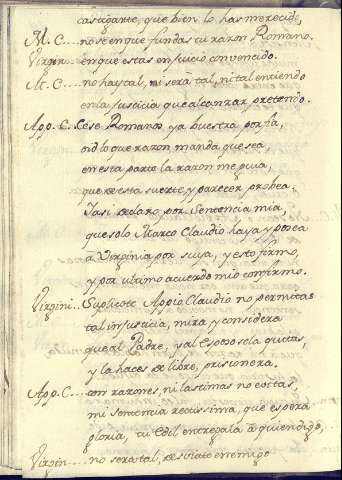 castigarte, que bien lo has merecido
M. C.... no se en que fundas tu razon Romano.
Virgin.. en que estas en juicio convencido.
M. C.... no hay tal, ni será tal, ni tal entiendo
en la justicia que alcanzar pretendo.
App. C. Cese Romanos ya buestra porfia,
oid lo que razon manda que sea,
en esta parte la razon me guia,
que de esta suerte y parecer probea.
Iasi declaro, por Sentencia mia
que solo Marco Claudio haya y posea
a Virginia por suya, y esto firmo,
y por ultimo acuerdo mio confirmo.
Virgini.. Suplicote Appio Claudio no permitas
tal injusticia, mira y considera
que al Padre, y al Esposo se la quitas,
y la haces de libre, prisionera.
App. C.... con razones, ni lastimas no evitas,
mi sentencia rectissima, que espera
gloria, tu Edil entregala á quien digo,
Virgin.... no será tal, enemigo